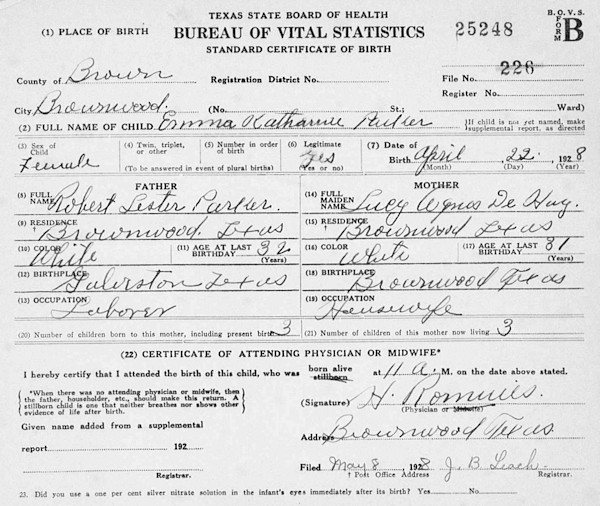 TEXAS STATE BOARD OF HEALTH
B.O.V.S.
(1) PLACE OF BIRTH BUREAU OF VITAL STATISTICS 25248 FORM B
STANDARD CERTIFICATE OF BIRTH
County of Brown Registration District No. File No. 226
Register No.
City Brownwood. (No. St.; Ward)
(2) FULL NAME OF CHILD Emma Katharine {If child is not yet named, make supplemental report, as directed
(3) Sex of Child Female (4) Twin, triplet, or other (5) Number in order of birth (To be answered in event of plural births) (6) Legitimate Yes (Yes or no) (7) Date of Birth April 22. 1928
(Month) (Day) (Year)
FATHER MOTHER
(8) FULL NAME Robert Lester (14) FULL MAIDEN NAME Lucy De Hay.
(9) RESIDENCE † Brownwood. Texas (15) RESIDENCE † Brownwood Texas
(10) COLOR White (11) AGE AT LAST BIRTHDAY 32 (Years) (16) COLOR White (17) AGE AT LAST BIRTHDAY 31 (Years)
(12) BIRTHPLACE Galveston Texas (18) BIRTHPLACE Brownwood Texas
(13) OCCUPATION Laborer (19) OCCUPATION Housewife
(20) Number of children born to this mother, including present birth 3 (21) Number of children of this mother now living 3
(22) CERTIFICATE OF ATTENDING PHYSICIAN OR MIDWIFE*
I hereby certify that I attended the birth of this child, who was born alive stillborn at 11 a. M. on the date above stated.
{*When there was no attending physician or midwife, then the father, householder, etc., should make this return. A stillborn child is one that neither breathes nor shows other evidence of life after birth.}
(Signature) H.
(Physician or Midwife)
Given name added from a supplemental
Address Brownwood Texas
report 192
Filed May 8, 1928. J. B. Leach.
† Post Office Address Registrar.
Registrar.
23. Did you use a one per cent silver nitrate solution in the infant's eyes immediately after its birth? Yes No.